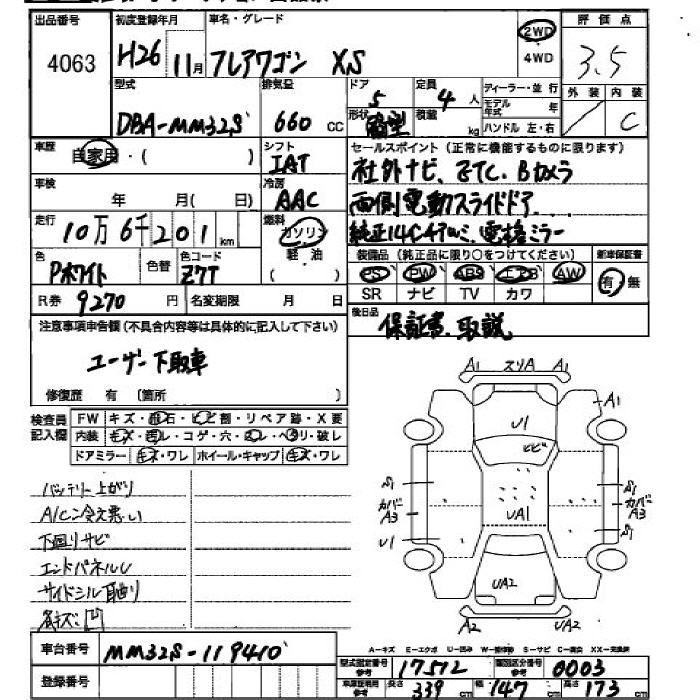 出品番号 初度登録年月 車名・グレード 2WD 評価点
4063 H26 11月 フレアワゴン XS 4WD 3.5
型式 排気量 ドア 定員 ディーラー・並行 外装 内装
DBA-MM32S 660 cc 5 4人 モデル年式 年 C
形状 箱型 積載 kg ハンドル 左・右
車歴 自家用・( ) シフト IAT セールスポイント (正常に機能するものに限ります)
社外ナビ、ETC.Bカメラ
車検 年 月( 日) 冷房 AAC
両側電動スライドドア
走行 10万6千201km 燃料 ガソリン 軽油 ( )
純正14インチアルミ、電格ミラー
色 Pホワイト 色替 色コード Z7T
装備品 (純正品に限り○をつけてください) 新車保証書
PS PW ABS エアB AW 有・無
SR ナビ TV カワ
R券 9270円 名変期限 月 日
後日品 保証書、取説
注意事項申告欄(不具合内容等は具体的に記入して下さい)
ユーザー下取車
修復歴 有 〔箇所 〕
検査員記入欄
FW キズ・飛石・ヒビ割・リペア跡・X要
内装 キズ・汚レ・コゲ・穴・ヌレ・ヘタリ・破レ
ドアミラー キズ・ワレ ホイール・キャップ キズ・ワレ
バッテリー上がり
A/C冷え悪い
下回りサビ
エンドパネルU
サイドシル
各キズ凹
A1 スリA A1
A1
U1
ヒビ
S1 S1
カバーA3 カバーA3
UA1
S1
U1
UA2
A2 UA2
車台番号 MM32S-119410
A-キズ E-エクボ U-凹み W-補修跡 S-サビ C-腐蝕 XX-交換済
型式指定番号 17512 類別区分番号 0003
登録番号
車庫証明用参考 長さ参考 339cm 幅参考 147cm 高さ参考 173cm